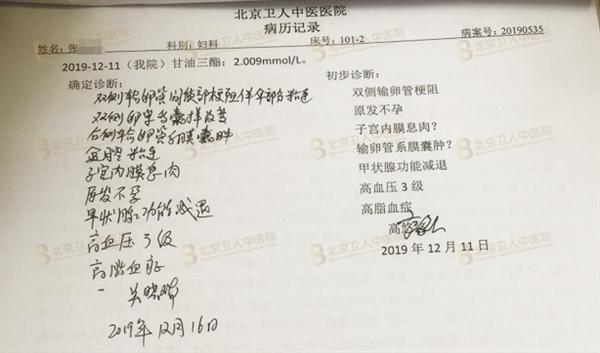 北京卫人中医医院
病历记录
姓名：张 科别：妇科 床号：101-2 病案号：20190535
2019-12-11（我院）甘油三酯：2.009mmol/L。
确定诊断：
双侧输卵管间质部梗阻伴伞部粘连
双侧卵巢多囊样改变
右侧输卵管系膜囊肿
盆腔粘连
子宫内膜息肉
原发不孕
甲状腺功能减退
高血压3级
高脂血症
2019年12月16日
初步诊断：
双侧输卵管梗阻
原发不孕
子宫内膜息肉？
输卵管系膜囊肿？
甲状腺功能减退
高血压 3 级
高脂血症
2019 年 12 月 11 日
北京卫人中医院